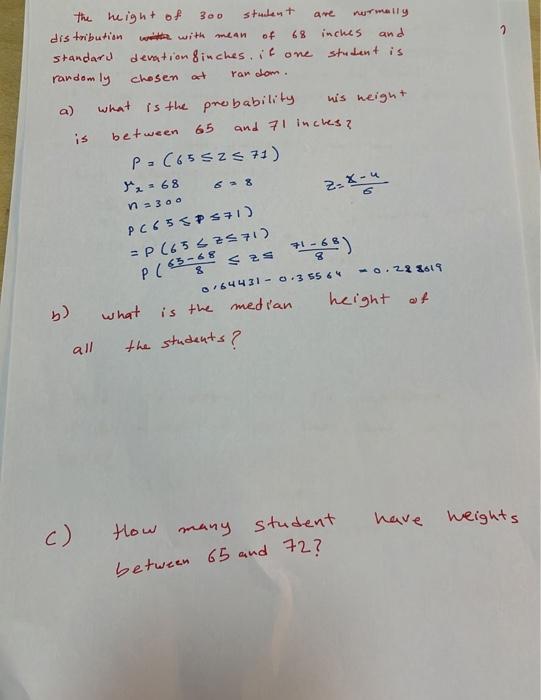 The height of 300 student are normally
distribution with mean of 68 inches and
standard devation 8 inches. if one student is
randomly chosen at random.
a) what is the probability his height
is between 65 and 71 inches?
P = (65 ≤ Z ≤ 71)
μx = 68 σ = 8 Z = x - u / σ
n = 300
P(65 ≤ P ≤ 71)
= P(65 ≤ Z ≤ 71)
P(65-68 / 8 ≤ Z ≤ 71-68 / 8)
0.64431 - 0.35564 = 0.288619
b) what is the median height of
all the students?
c) How many student have heights
between 65 and 72?